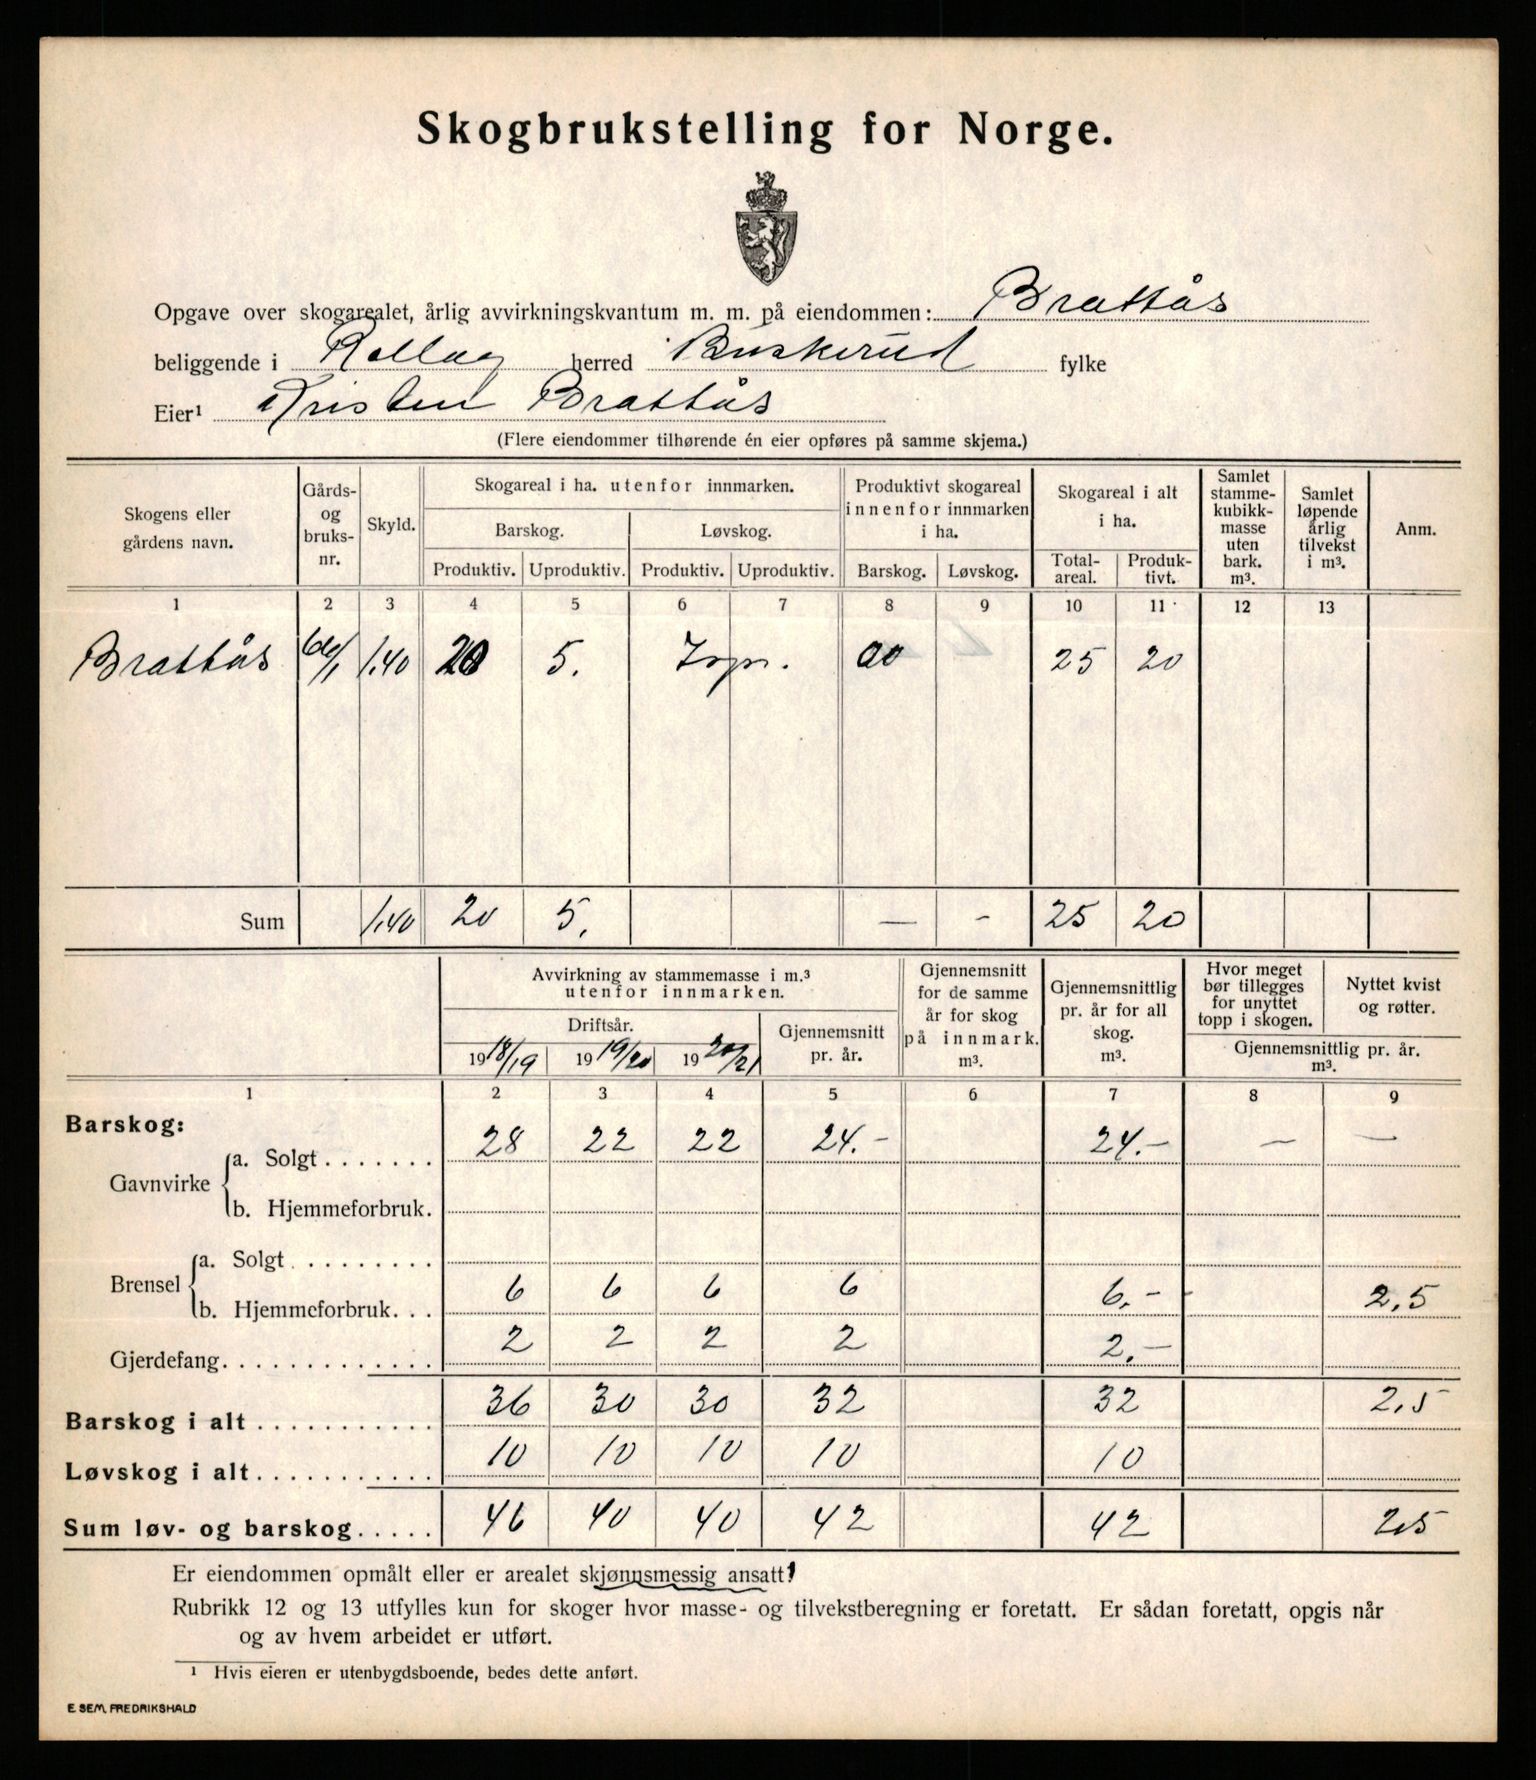 Skogbrukstelling for Norge.
Opgave over skogarealet, årlig avvirkningskvantum m. m. på eiendommen: Brattås
beliggende i Rollag herred Buskerud fylke
Eier¹ Kristen Brattås
(Flere eiendommer tilhørende én eier opføres på samme skjema.)
Skogens eller gårdens navn. Gårds- og bruks- nr. Skyld. Skogareal i ha. utenfor innmarken. Produktivt skogareal innenfor innmarken i ha. Skogareal i alt i ha. Samlet stamme- kubikk- masse uten bark. m³. Samlet løpende årlig tilvekst i m³. Anm.
Barskog. Løvskog.
Produktiv. Uproduktiv. Produktiv. Uproduktiv. Barskog. Løvskog. Total- areal. Produk- tivt.
1 2 3 4 5 6 7 8 9 10 11 12 13
Brattås 66/1 1.40 20 5. 25 20
Sum 1.40 20 5. — - 25 20
Avvirkning av stammemasse i m.³ utenfor innmarken. Gjennemsnitt for de samme år for skog på innmark. m³. Gjennemsnittlig pr. år for all skog. m³. Hvor meget bør tillegges for unyttet topp i skogen. Nyttet kvist og røtter.
Driftsår. Gjennemsnitt pr. år. Gjennemsnittlig pr. år. m³.
1918/19 1919/20 1920/21
1 2 3 4 5 6 7 8 9
Barskog:
Gavnvirke a. Solgt....... 28 22 22 24.- 24.- — —
b. Hjemmeforbruk.
Brensel a. Solgt.........
b. Hjemmeforbruk... 6 6 6 6 6.- - 2,5
Gjerdefang.............. 2 2 2 2 2.-
Barskog i alt........... 36 30 30 32 32 2,5
Løvskog i alt........... 10 10 10 10 10
Sum løv- og barskog..... 46 40 40 42 42 2,5
Er eiendommen opmålt eller er arealet skjønnsmessig ansatt?
Rubrikk 12 og 13 utfylles kun for skoger hvor masse- og tilvekstberegning er foretatt. Er sådan foretatt, opgis når
og av hvem arbeidet er utført.
¹ Hvis eieren er utenbygdsboende, bedes dette anført.
E. SEM, FREDRIKSHALD